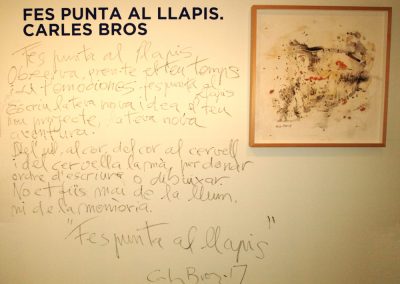 FES PUNTA AL LLAPIS.
CARLES BROS
Fes punta al llapis
Observa, prente el teu temps
i les emocions, fes punta al llapis
escriu la teva nova idea, el teu
nou projecte, la teva nova
aventura.
Del ull al cor, del cor al cervell
i del cervell a la mà, per donar
ordre d'escriure o dibuixar.
No et fiïs mai de la llum.
ni de la memòria.
"Fes punta al llapis"
Carles Bros. 17